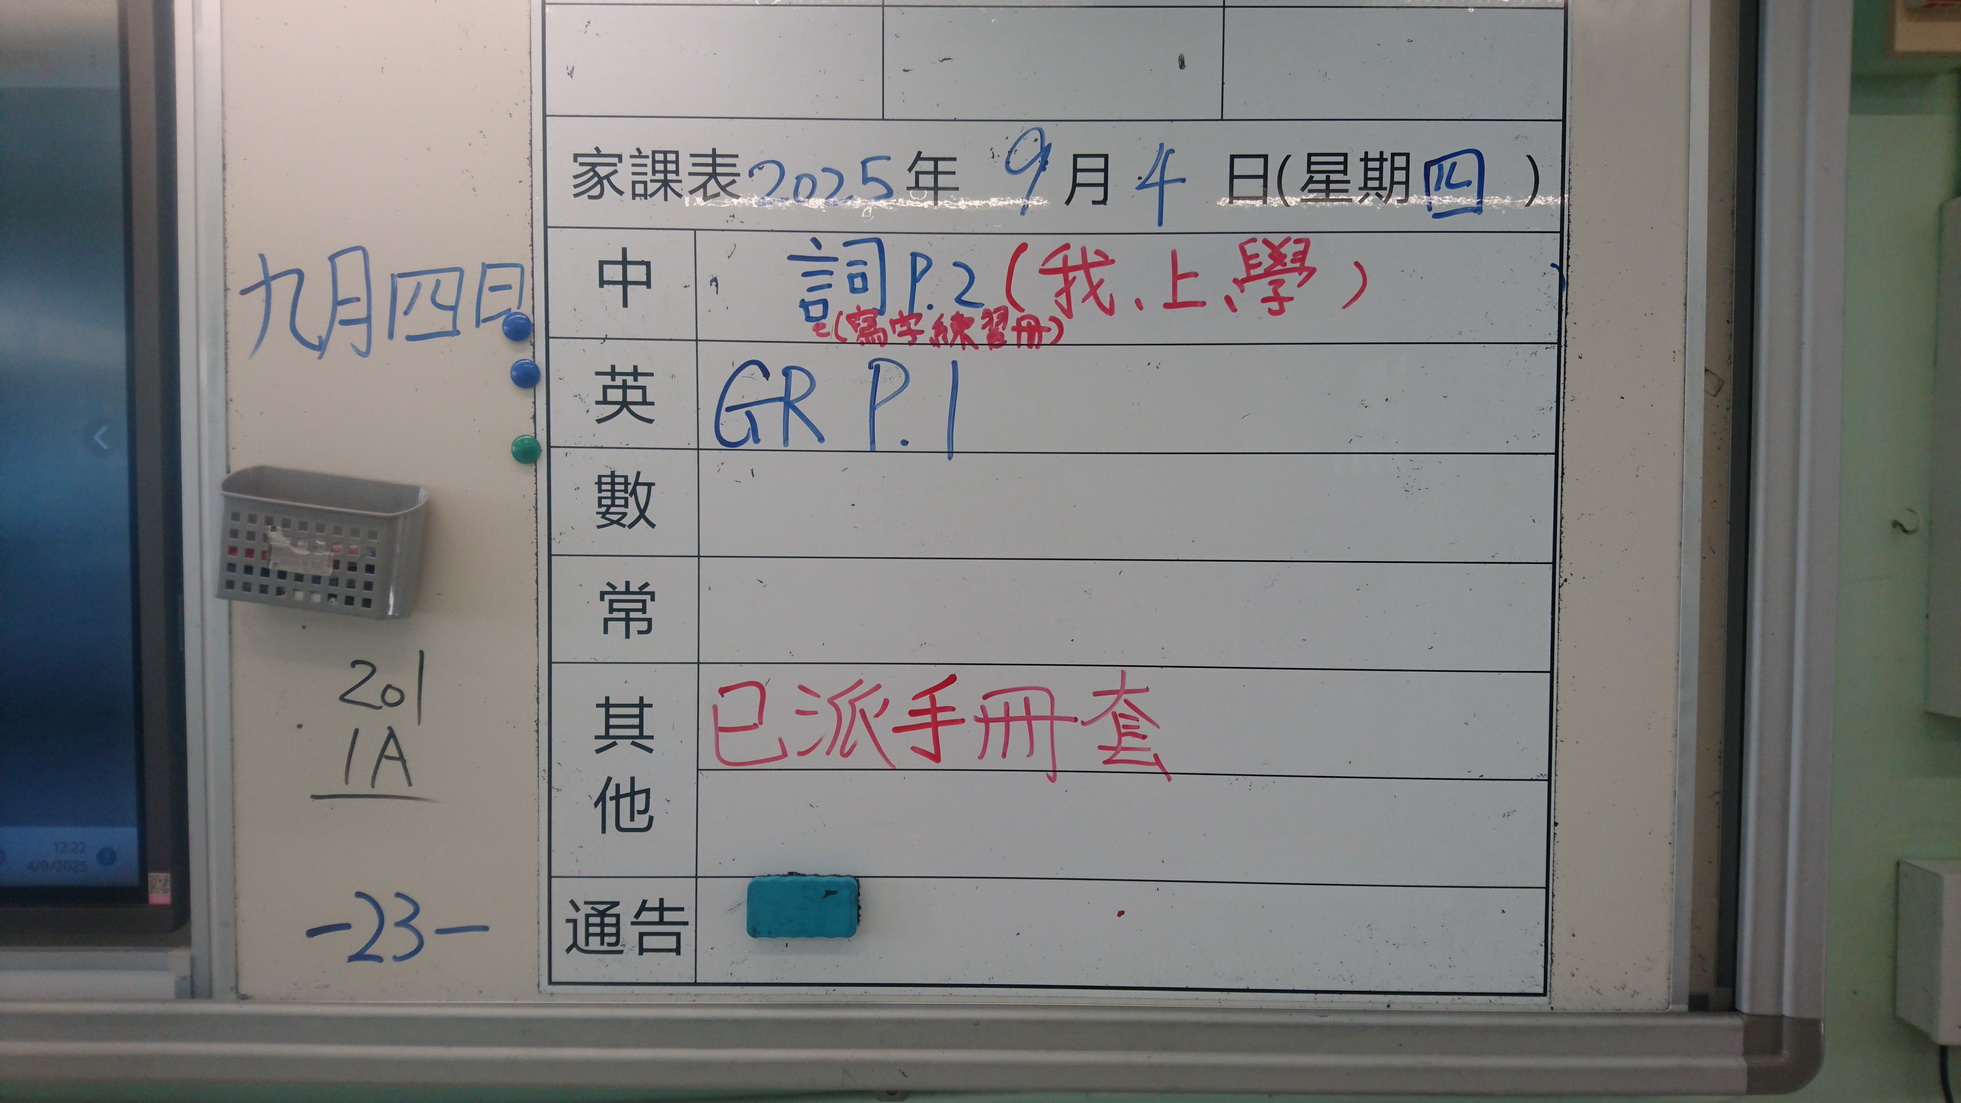 家課表2025年 9月4日(星期四)
九月四日
中 詞P.2(我、上、學)
(寫字練習冊)
英 GR P.1
數
常
其他 已派手冊套
通告
201
1A
-23-
12:22
4/9/2025